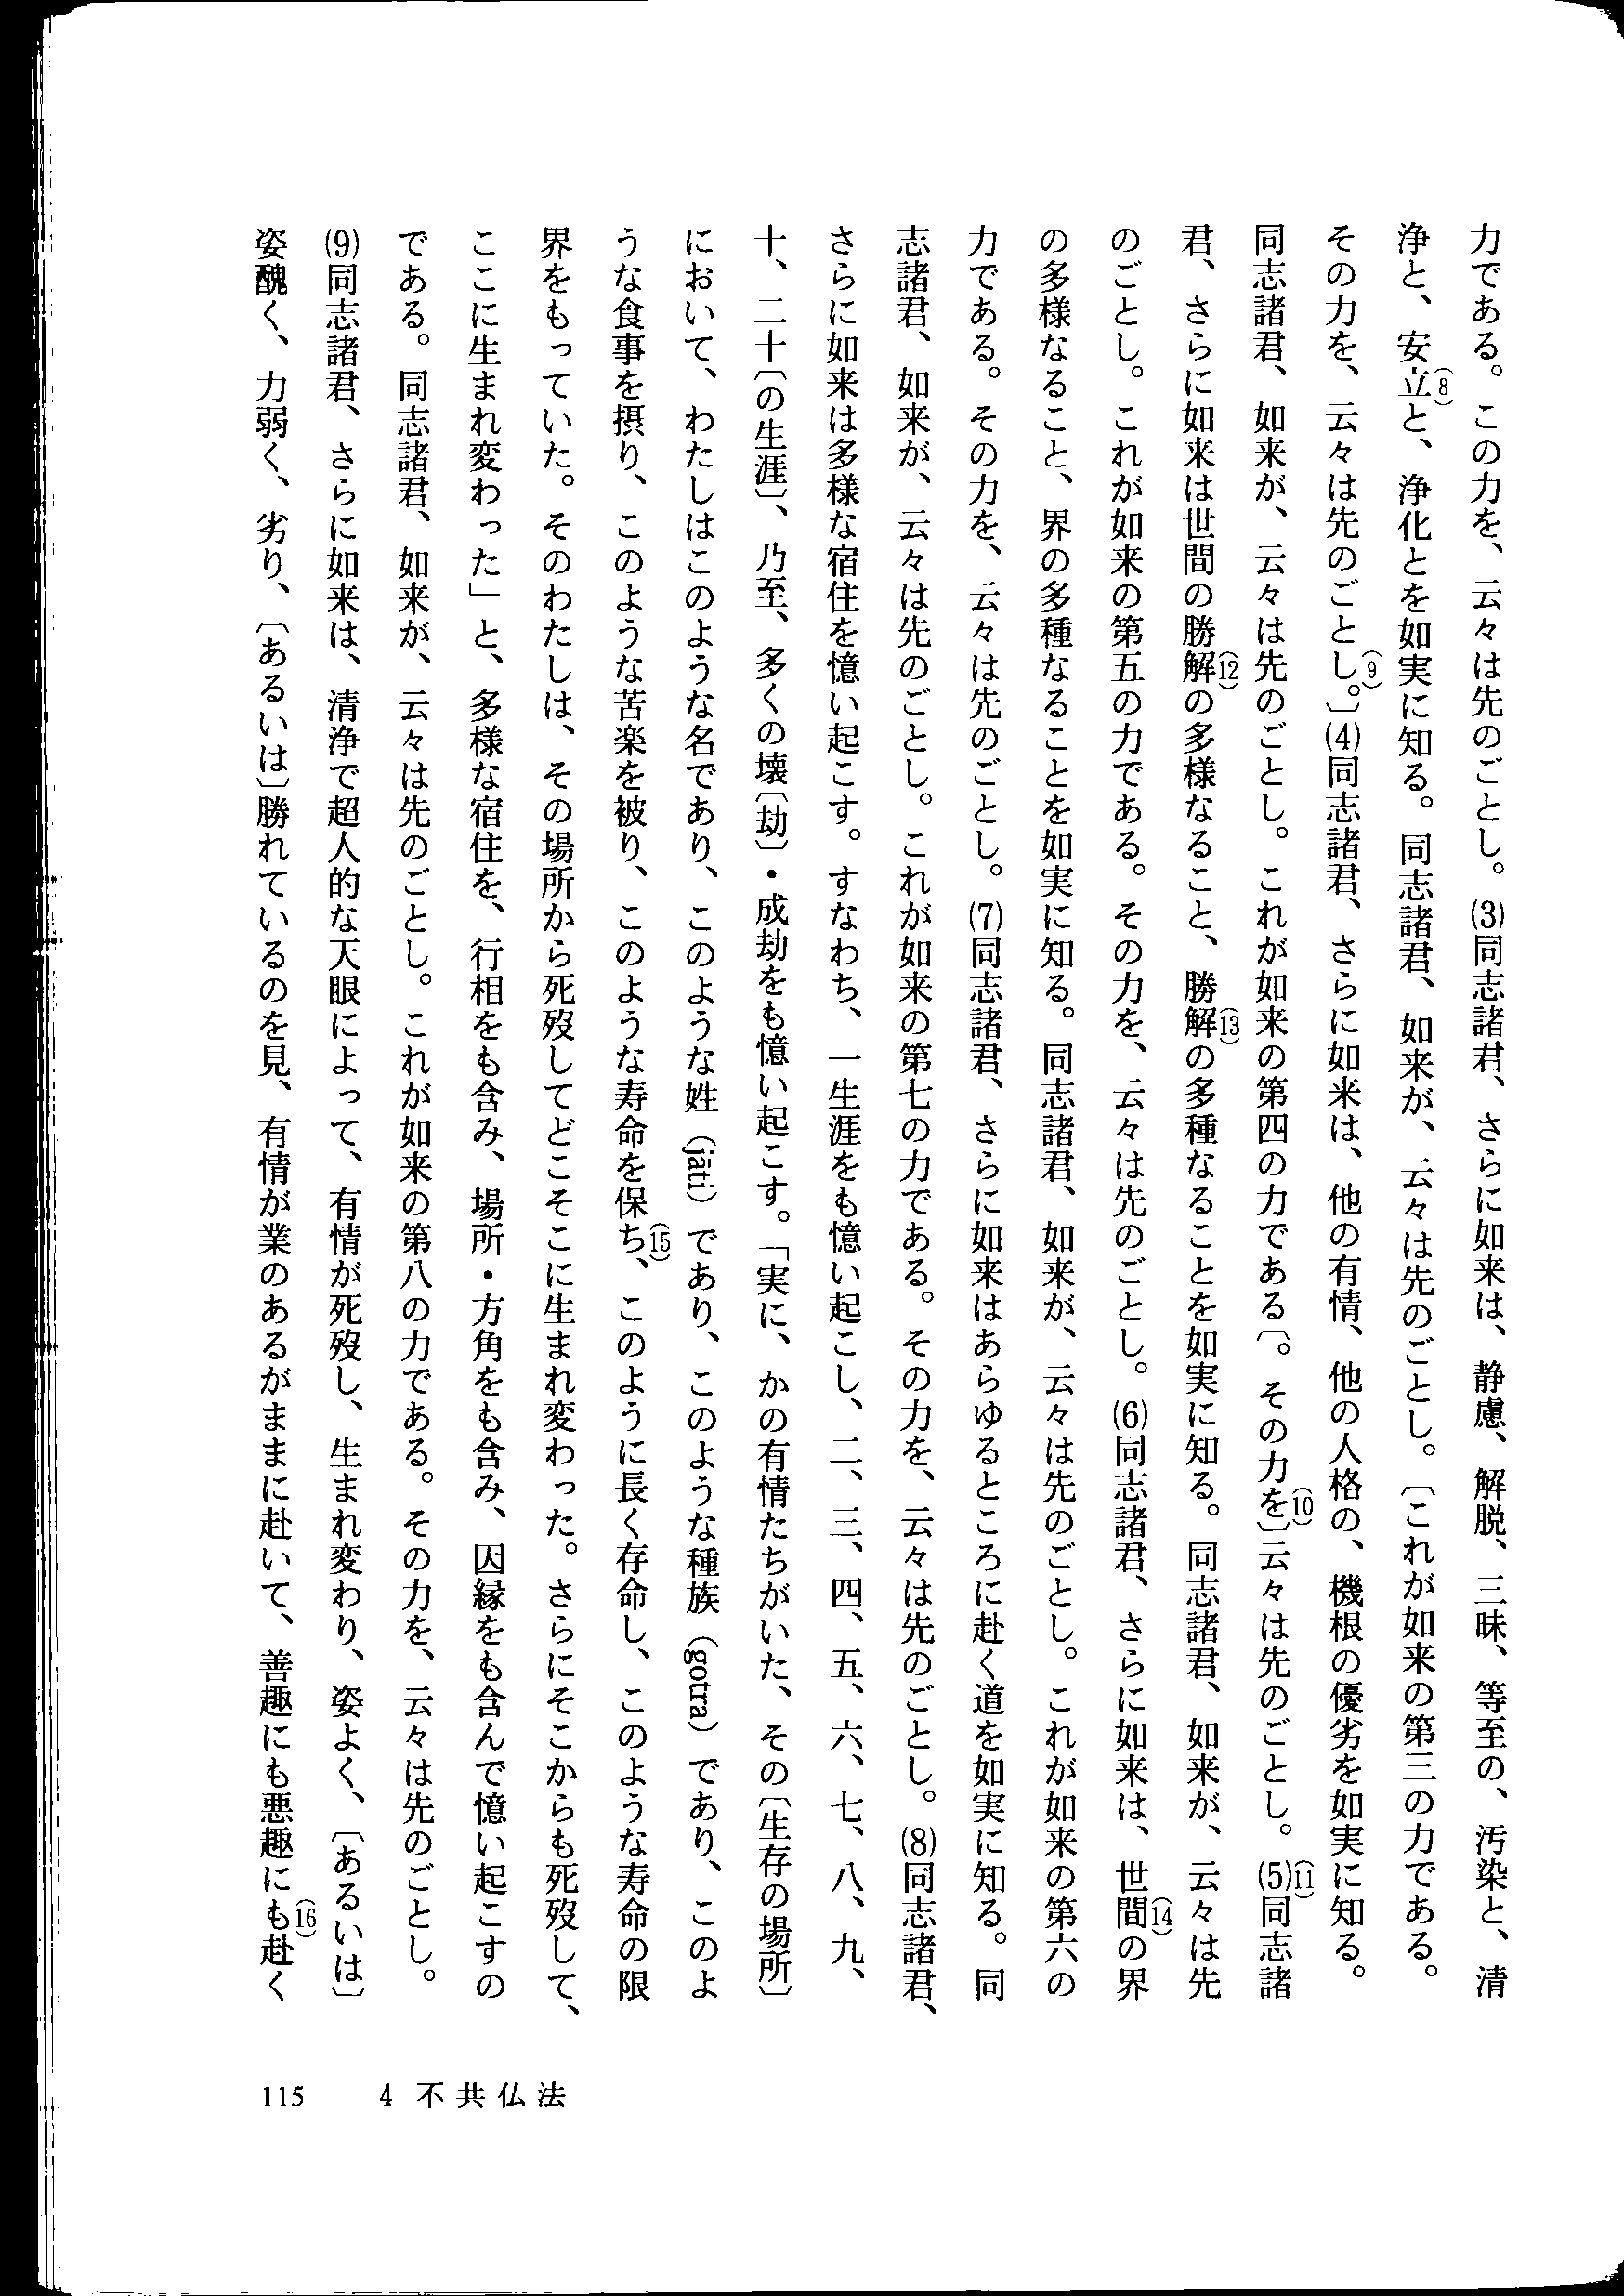 力である。この力を、云々は先のごとし。(3)同志諸君、さらに如来は、静慮、解脱、三昧、等至の、汚染と、清
浄と、安立(8)と、浄化とを如実に知る。同志諸君、如来が、云々は先のごとし。〔これが如来の第三の力である。
その力を、云々は先のごとし。(9)〕(4)同志諸君、さらに如来は、他の有情、他の人格の、機根の優劣を如実に知る。
同志諸君、如来が、云々は先のごとし。これが如来の第四の力である〔。その力を(10)〕云々は先のごとし。(5)(11)同志諸
君、さらに如来は世間の勝解(12)の多様なること、勝解(13)の多種なることを如実に知る。同志諸君、如来が、云々は先
のごとし。これが如来の第五の力である。その力を、云々は先のごとし。(6)同志諸君、さらに如来は、世間(14)の界
の多様なること、界の多種なることを如実に知る。同志諸君、如来が、云々は先のごとし。これが如来の第六の
力である。その力を、云々は先のごとし。(7)同志諸君、さらに如来はあらゆるところに赴く道を如実に知る。同
志諸君、如来が、云々は先のごとし。これが如来の第七の力である。その力を、云々は先のごとし。(8)同志諸君、
さらに如来は多様な宿住を憶い起こす。すなわち、一生涯をも憶い起こし、二、三、四、五、六、七、八、九、
十、二十〔の生涯〕、乃至、多くの壊〔劫〕・成劫をも憶い起こす。「実に、かの有情たちがいた、その〔生存の場所〕
において、わたしはこのような名であり、このような姓（jāti）であり、このような種族（gotra）であり、このよ
うな食事を摂り、このような苦楽を被り、このような寿命を保ち(15)、このように長く存命し、このような寿命の限
界をもっていた。そのわたしは、その場所から死歿してどこそこに生まれ変わった。さらにそこからも死歿して、
ここに生まれ変わった」と、多様な宿住を、行相をも含み、場所・方角をも含み、因縁をも含んで憶い起こすの
である。同志諸君、如来が、云々は先のごとし。これが如来の第八の力である。その力を、云々は先のごとし。
(9)同志諸君、さらに如来は、清浄で超人的な天眼によって、有情が死歿し、生まれ変わり、姿よく、〔あるいは〕
姿醜く、力弱く、劣り、〔あるいは〕勝れているのを見、有情が業のあるがままに赴いて、善趣にも悪趣にも(16)赴く
115 4 不共仏法